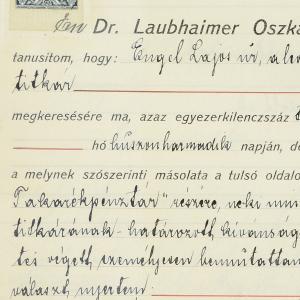 Én Dr. Laubhaimer Oszká
tanusítom, hogy: Engel Lajos úr, a
titkár
megkeresésére ma, azaz egyezerkilenczszáz
hó huszonharmadik napján, de
a melynek szószerinti másolata a tulsó oldalo
Takarékpénztár" részére, neki mint
titkárának - határozott kivánság
tés végett, személyesen bemutattam
választ nyertem: